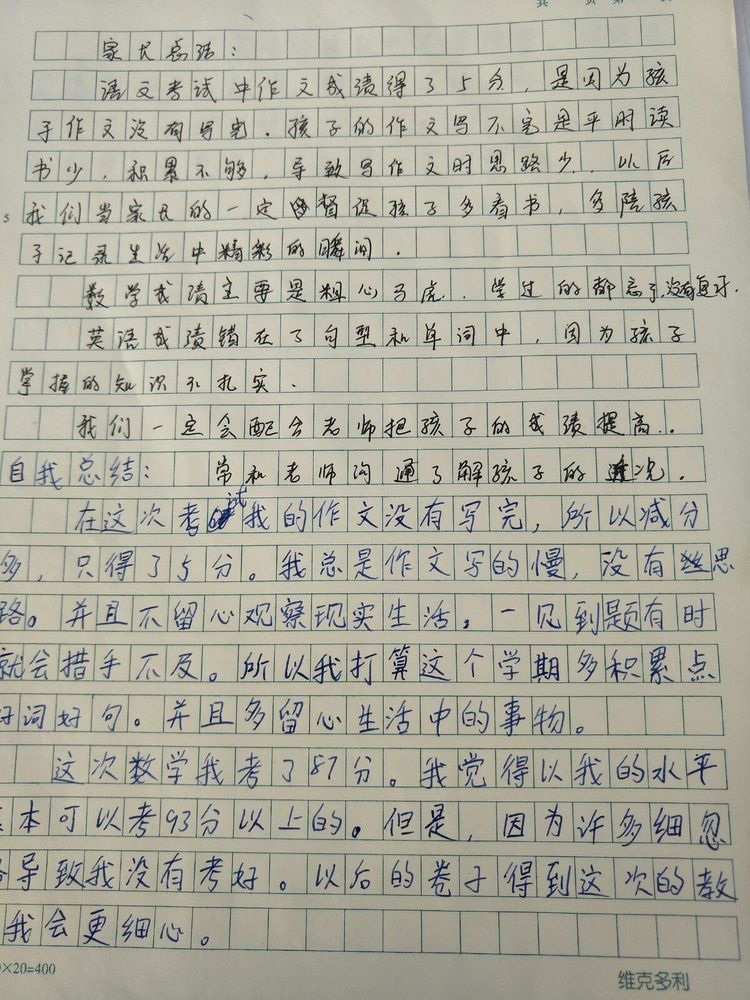 共 页 第 页
家长总结：
语文考试中作文成绩得了5分，是因为孩
子作文没有写完．孩子的作文写不完是平时读
书少，积累不够，导致写作文时思路少．以后
5 我们当家长的一定督促孩子多看书，多陪孩
子记录生活中精彩的瞬间．
数学成绩主要是粗心马虎．学过的都忘了，没有复习．
英语成绩错在了句型和单词中，因为孩子
掌握的知识不扎实．
我们一定会配合老师把孩子的成绩提高．．
自我总结： 常和老师沟通了解孩子的 况．
在这次考试我的作文没有写完，所以减分
多，只得了5分。我总是作文写的慢，没有丝思
路。并且不留心观察现实生活，一见到题有时
就会措手不及。所以我打算这个学期多积累点
好词好句。并且多留心生活中的事物。
这次数学我考了87分。我觉得以我的水平
本可以考93分以上的。但是，因为许多细忽
导致我没有考好。以后的卷子得到这次的教
我会更细心。
×20=400
维克多利